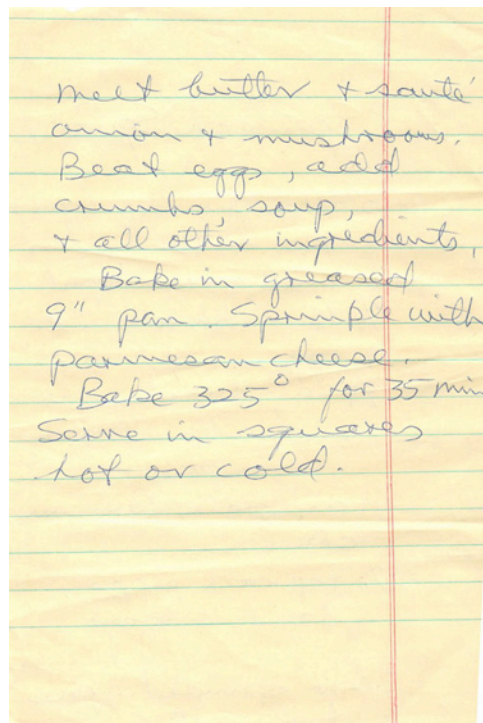 melt butter + sauté
onion + mushrooms.
Beat eggs, add
crumbs, soup,
+ all other ingredients,
Bake in greased
9" pan. Sprinkle with
parmesan cheese.
Bake 325° for 35 min
Serve in squares
hot or cold.